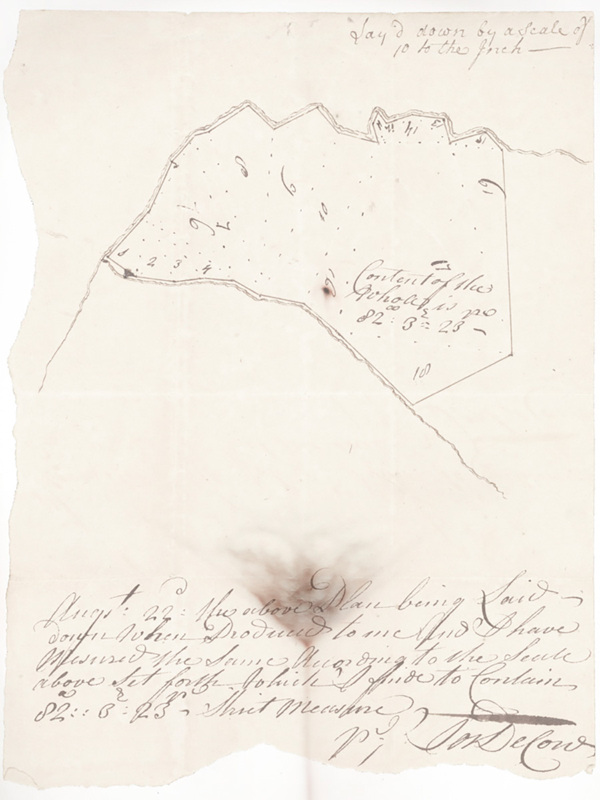 Lay'd down by a scale of
10 to the Inch
14
2 3 4
10
Content of the
Whole is
82: 3: 23
18
Augst: 22d: the above Plan being Laid
down When Produced to me And I have
Mesured the Same According to the Scale
above Set forth Which I finde to Contain
82:: 3: 23 Strict Measure
Pr Jos DeCow